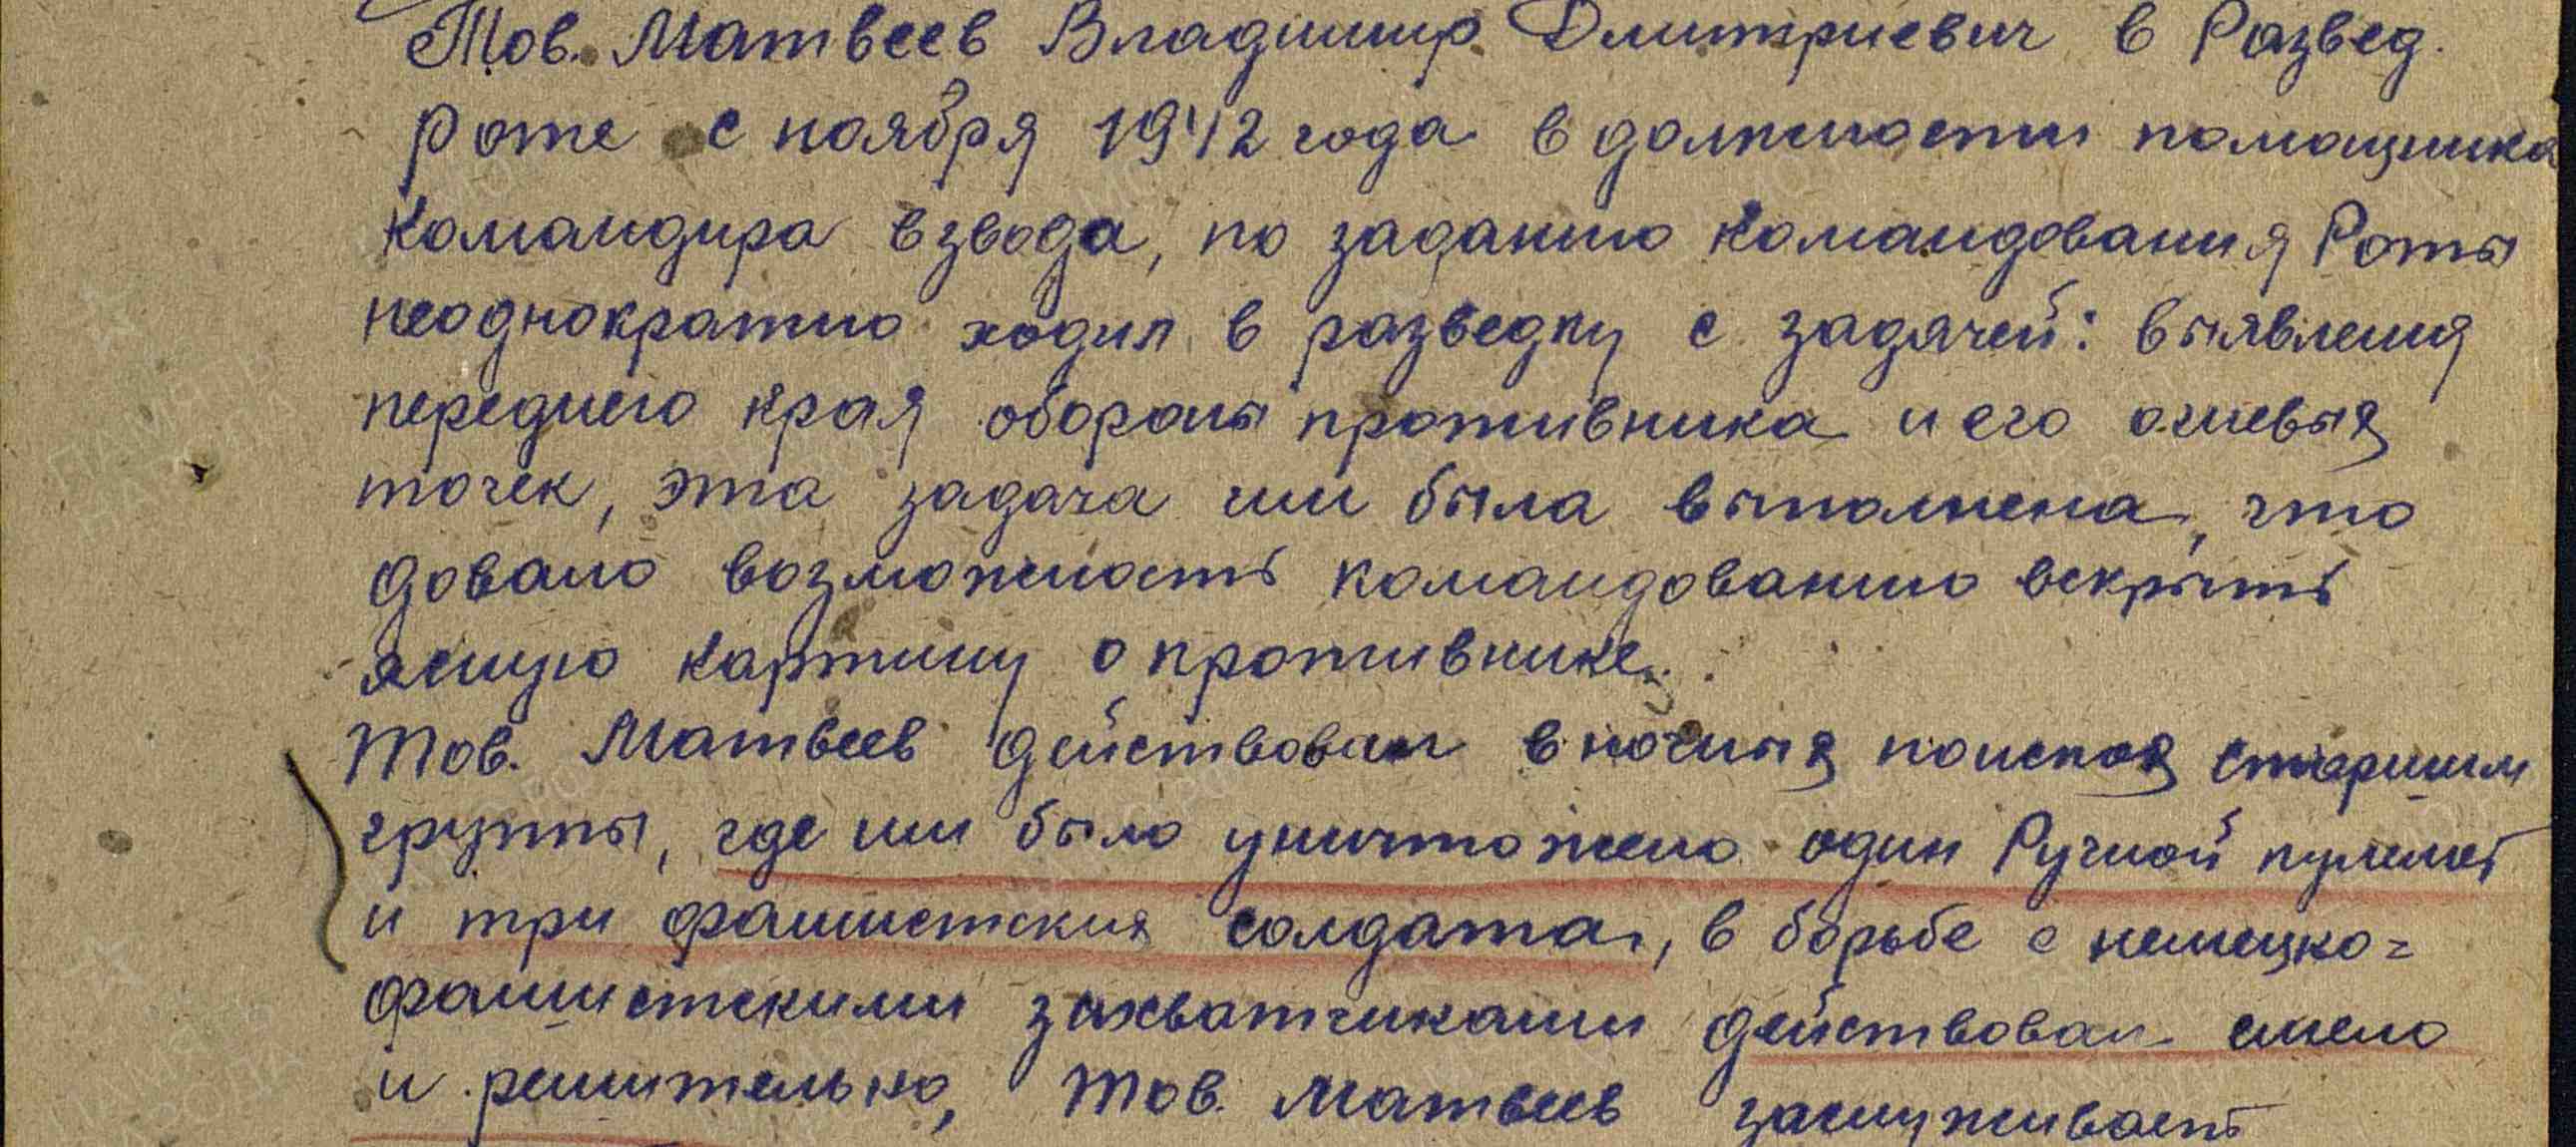 Тов. Матвеев Владимир Дмитриевич в Развед.
роте с ноября 1942 года в должности помощника
командира взвода, по заданию командования Роты
неоднократно ходил в разведку с задачей: выявления
переднего края обороны противника и его огневых
точек, эта задача им была выполнена, что
довало возможность командованию вскрыть
ясную картину о противнике.
Тов. Матвеев действовал в ночных поисках старшим
группы, где им было уничтожено один Ручной пулемет
и три фашистских солдата, в борьбе с немецко-
фашистскими захватчиками действовал смело
и решительно, Тов. Матвеев заслуживает